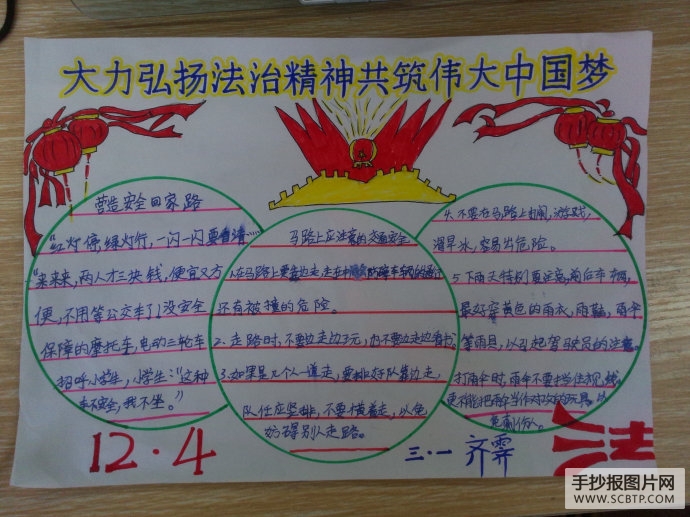 大力弘扬法治精神共筑伟大中国梦
营造安全回家路
"红灯停,绿灯行,一闪一闪要看清……
"来来来,两人才三块钱,便宜又方
便,不用等公交车了!没安全
保障的摩托车,电动三轮车
招呼小学生,小学生:"这种
车不安全,我不坐。"
马路上应注意的交通安全
1.在马路上要靠边走,走在中
防障车辆的通行
还有被撞的危险。
2.走路时,不要边走边玩,也不要边走边看书
3.如果是几个人一道走,要排好队靠边走,
队伍应竖排,不要横着走,以免
妨碍别人走路。
4.不要在马路上打闹,游戏,
溜旱冰,容易出危险。
5.下雨天特别要注意前后车辆,
最好穿黄色的雨衣,雨鞋,雨伞
等雨具,以引起驾驶员的注意。
打雨伞时,雨伞不要挡住视线,
更不能把雨伞当作对攻的玩具,以
免刺伤人。
12·4
三·一 齐霁
法
手抄报图片网
WWW.SCBTP.COM